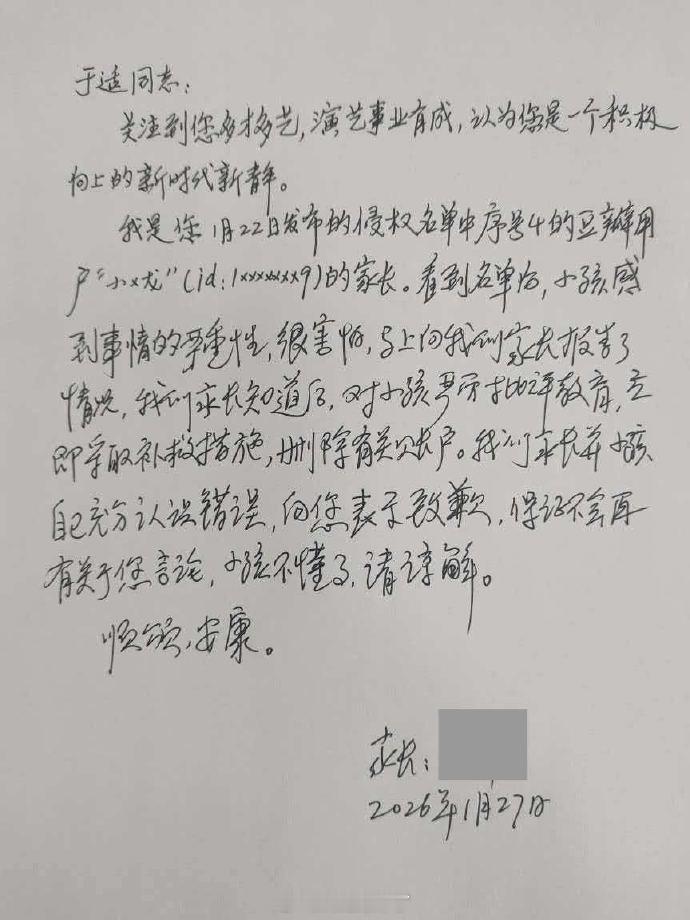 于适同志：
关注到您多才多艺，演艺事业有成，认为您是一个积极
向上的新时代新青年。
我是您1月22日发布的侵权名单中序号4的豆瓣用
户“小x龙”（id:1xxxxxxx9）的家长。看到名单后，小孩感
到事情的严重性，很害怕，马上向我们家长报告了
情况，我们家长知道后，对小孩严厉批评教育，立
即采取补救措施，删除有关账户。我们家长并小孩
自己充分认识错误，向您表示致歉，保证不会再
有关于您言论，小孩不懂事，请谅解。
顺颂，安康。
家长：
2026年1月27日